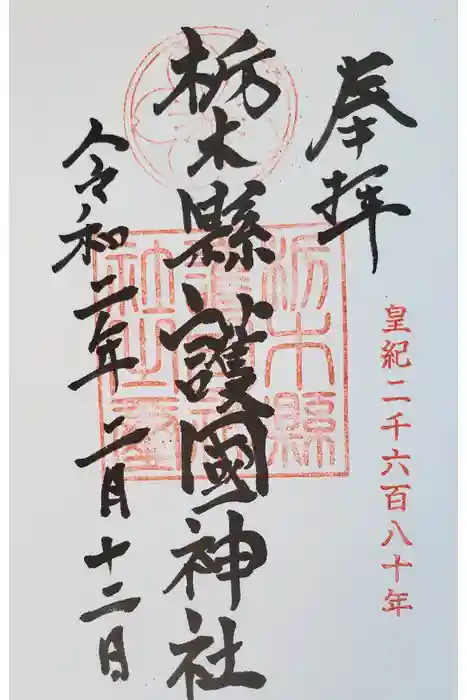 奉拝
皇紀二千六百八十年
栃木縣護國神社
栃木縣護國神社之璽
令和二年二月十二日